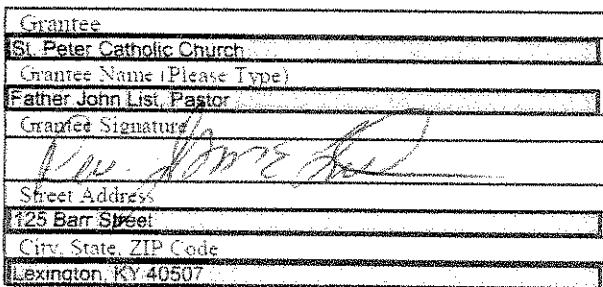 Grantee
St. Peter Catholic Church
Grantee Name (Please Type)
Father John List, Pastor
Grantee Signature
Rev. John E List
Street Address
125 Barr Street
City, State, ZIP Code
Lexington, KY 40507